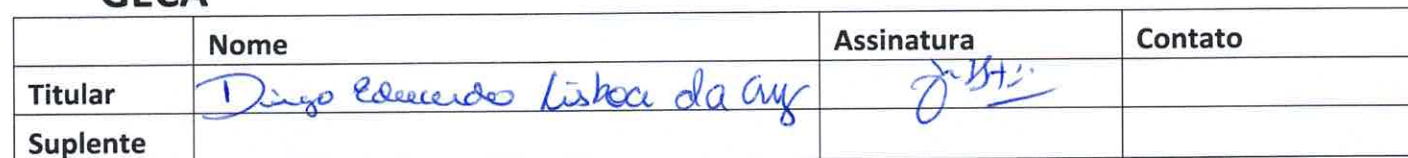 GECA
Nome Assinatura Contato
Titular Diogo Eduardo Lisboa da Cruz
Suplente